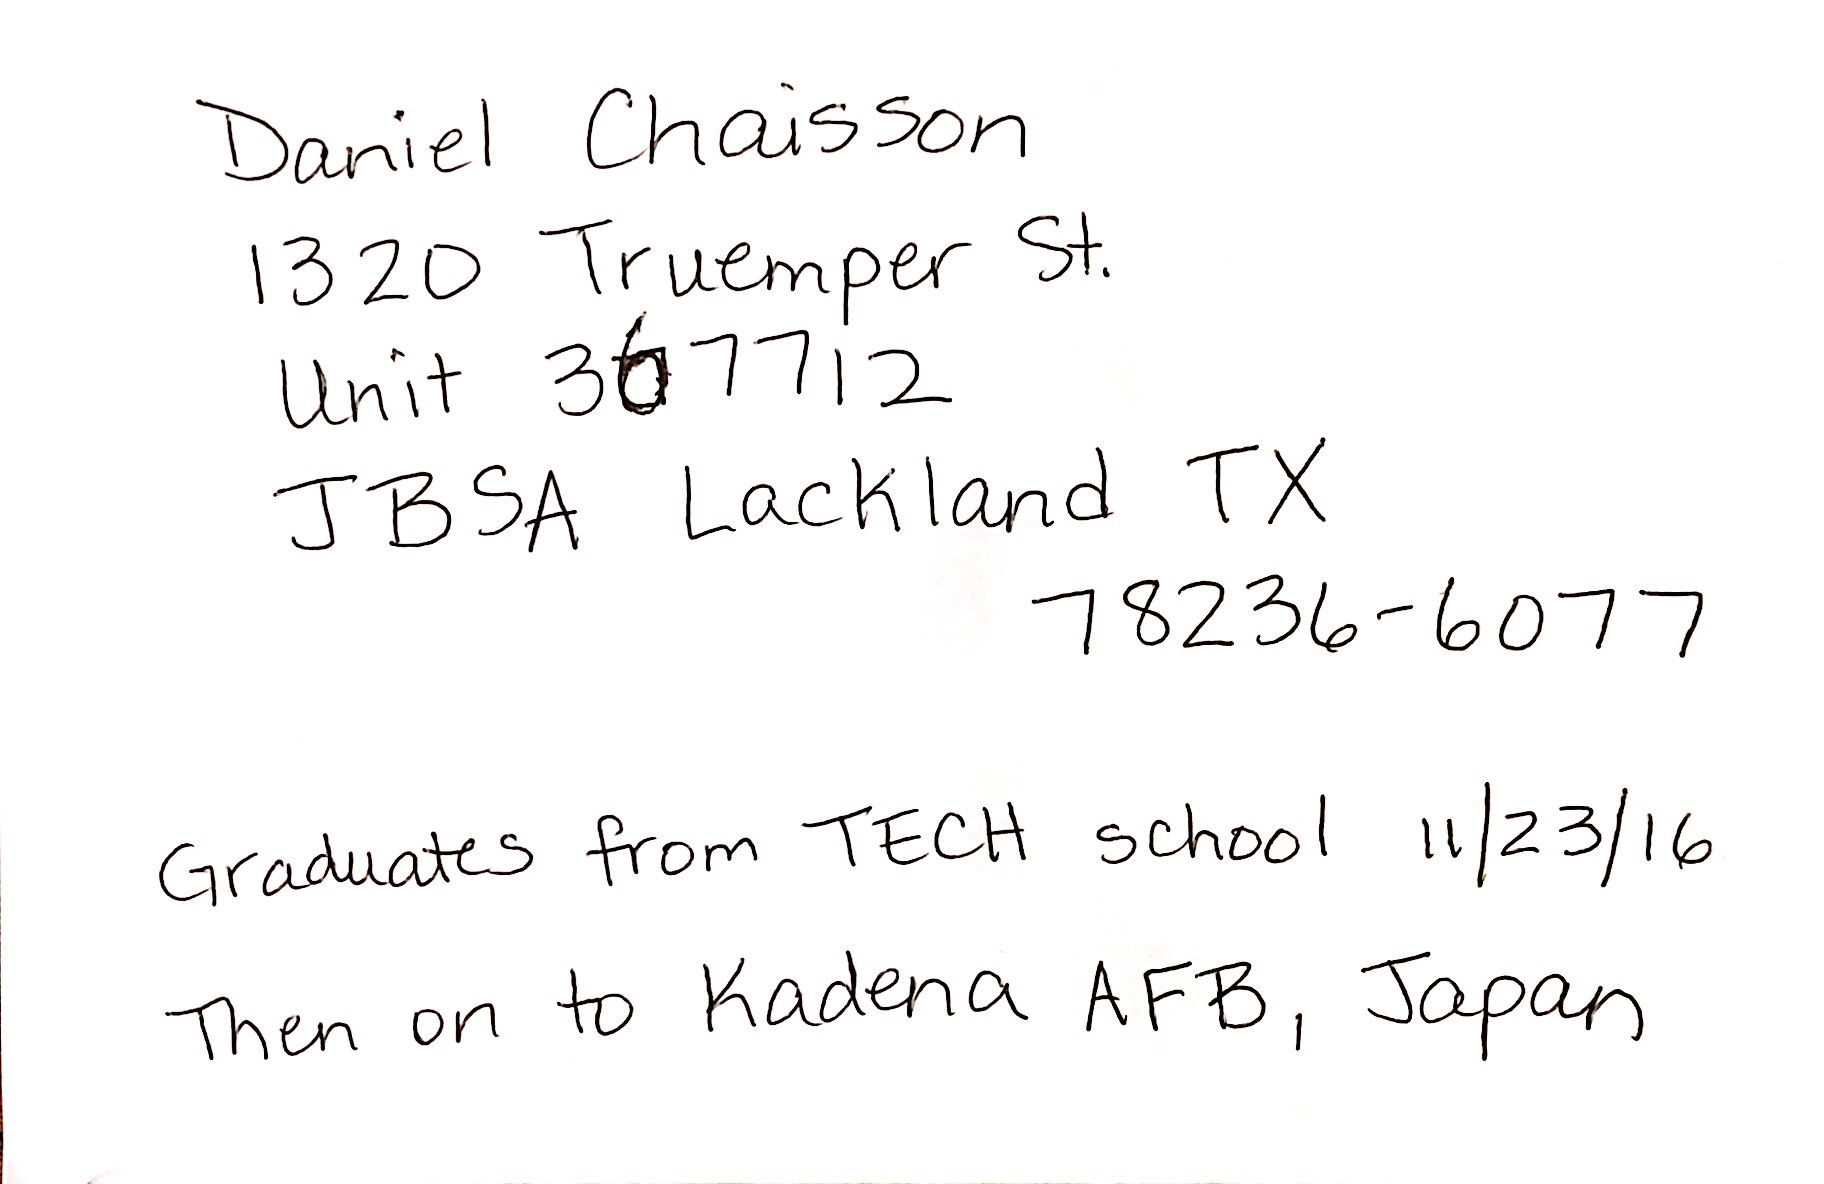 Daniel Chaisson
1320 Truemper St.
Unit 367712
JBSA Lackland TX
78236-6077
Graduates from TECH school 11/23/16
Then on to Kadena AFB, Japan